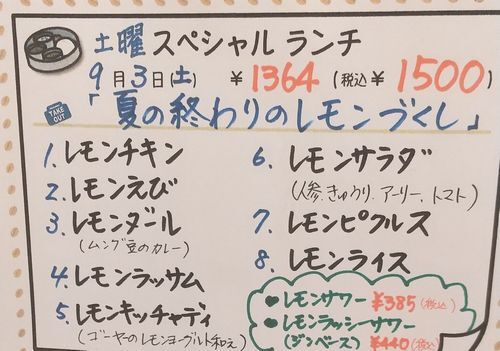 土曜 スペシャル ランチ
9月3日(土) ¥1364 (税込 ¥1500)
TAKE OUT
「夏の終わりのレモンづくし」
1. レモンチキン
2. レモンえび
3. レモンダール
(ムング豆のカレー)
4. レモンラッサム
5. レモンキッチャディ
(ゴーヤのレモンヨーグルト和え)
6. レモンサラダ
(人参、きゅうり、アーリー、トマト)
7. レモンピクルス
8. レモンライス
● レモンサワー ¥385 (税込)
● レモンラッシーサワー
(ジンベース) ¥440 (税込)